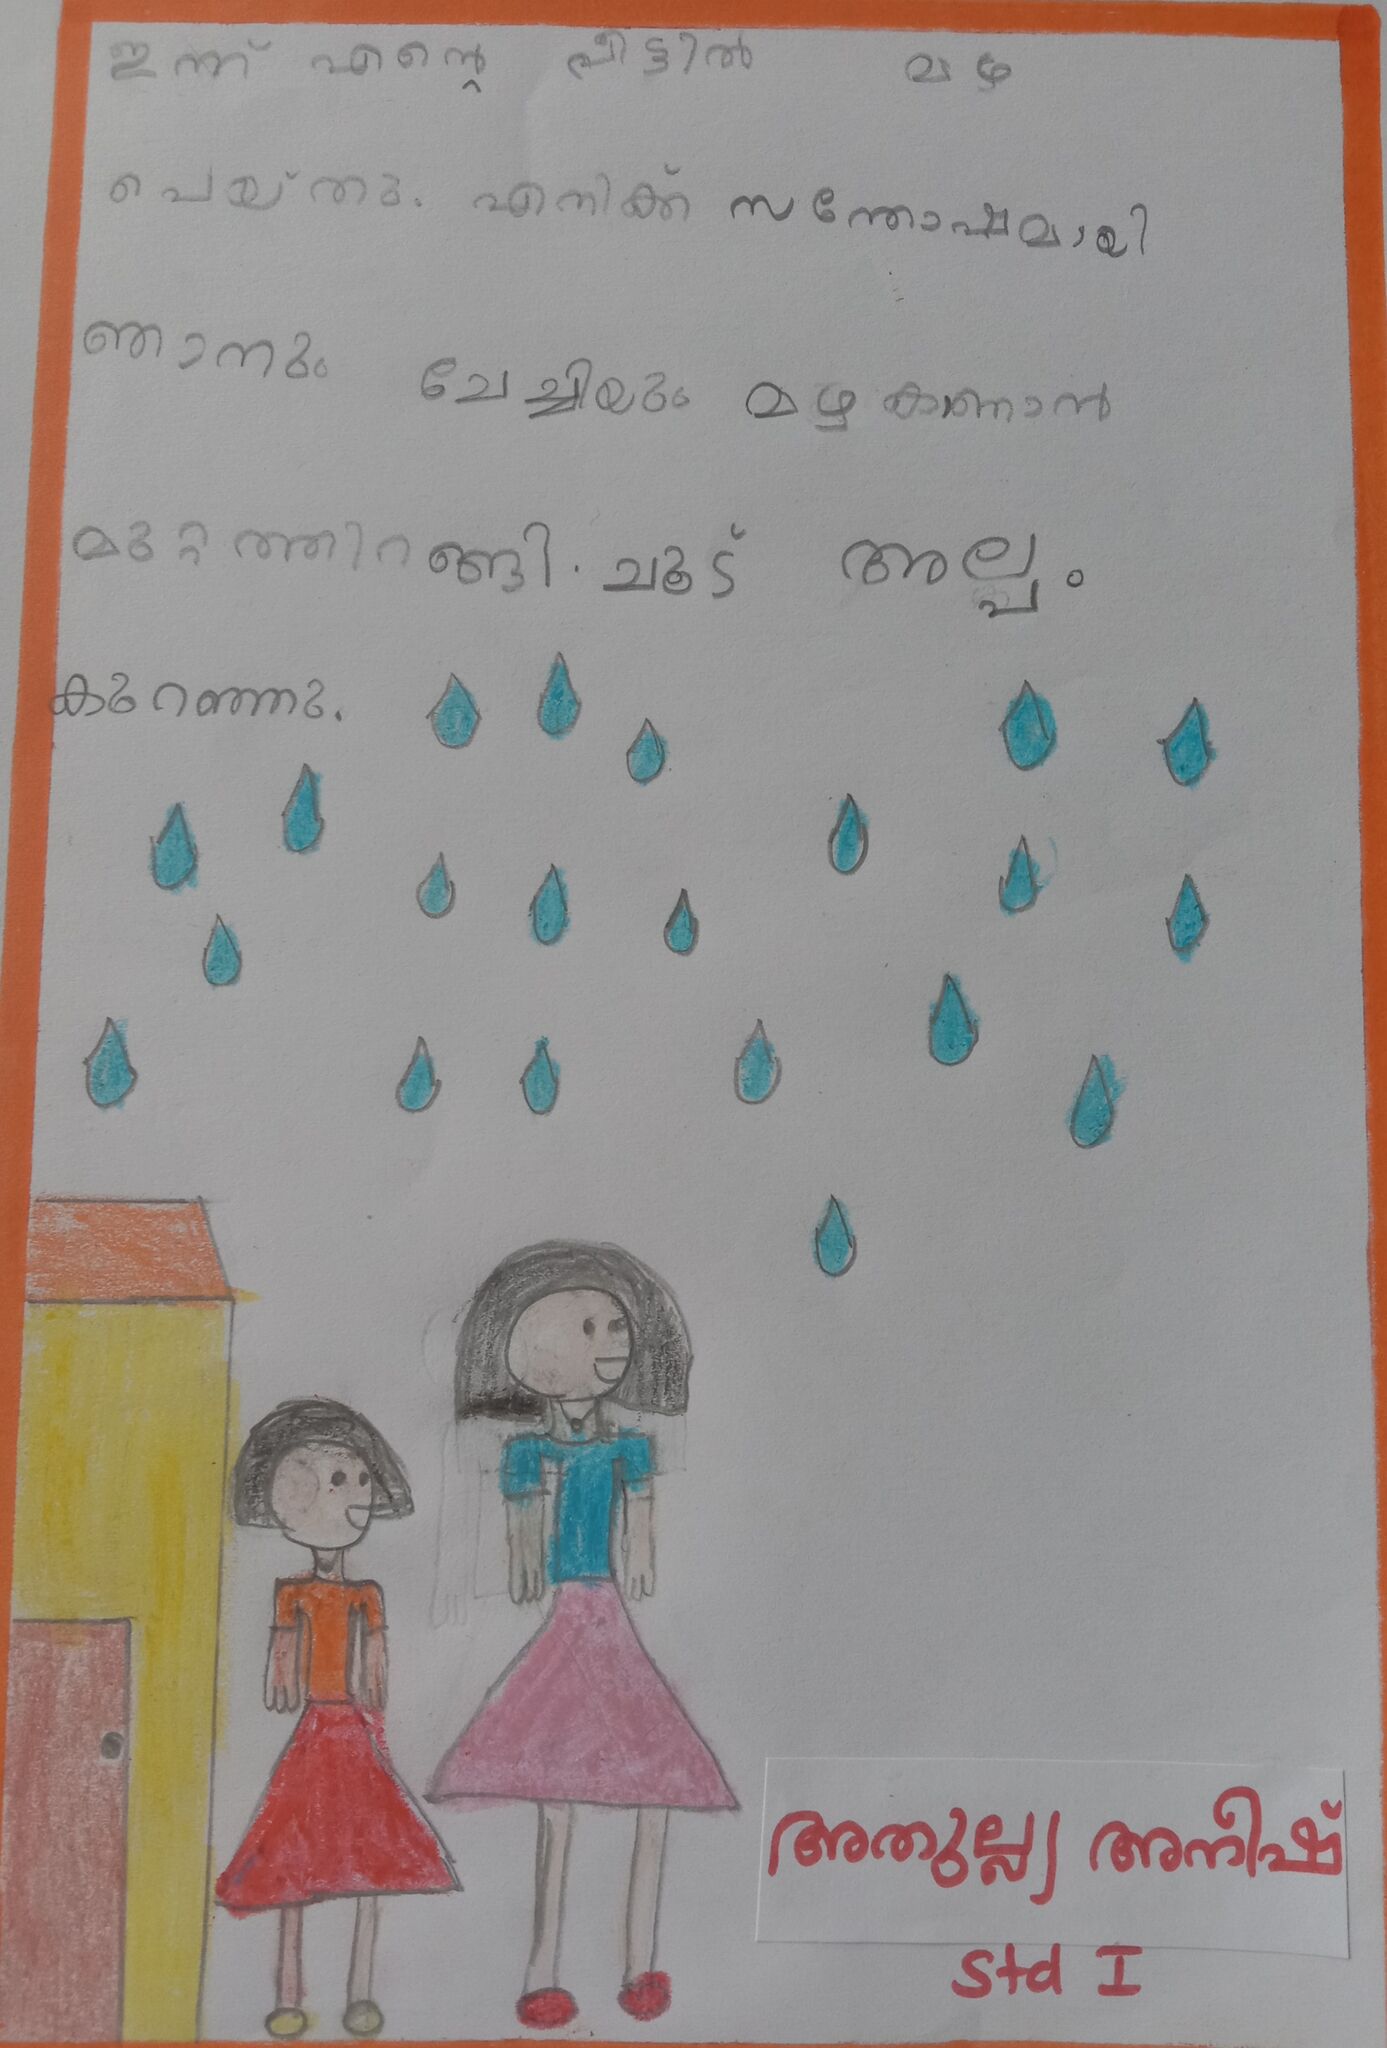 ഇന്ന് എന്റെ വീട്ടിൽ മഴ
പെയ്തു. എനിക്ക് സന്തോഷമായി
ഞാനും ചേച്ചിയും മഴകാണാൻ
മുറ്റത്തിറങ്ങി. ചൂട് അല്പം
കുറഞ്ഞു.
അതുല്ല്യ അനീഷ്
Std I